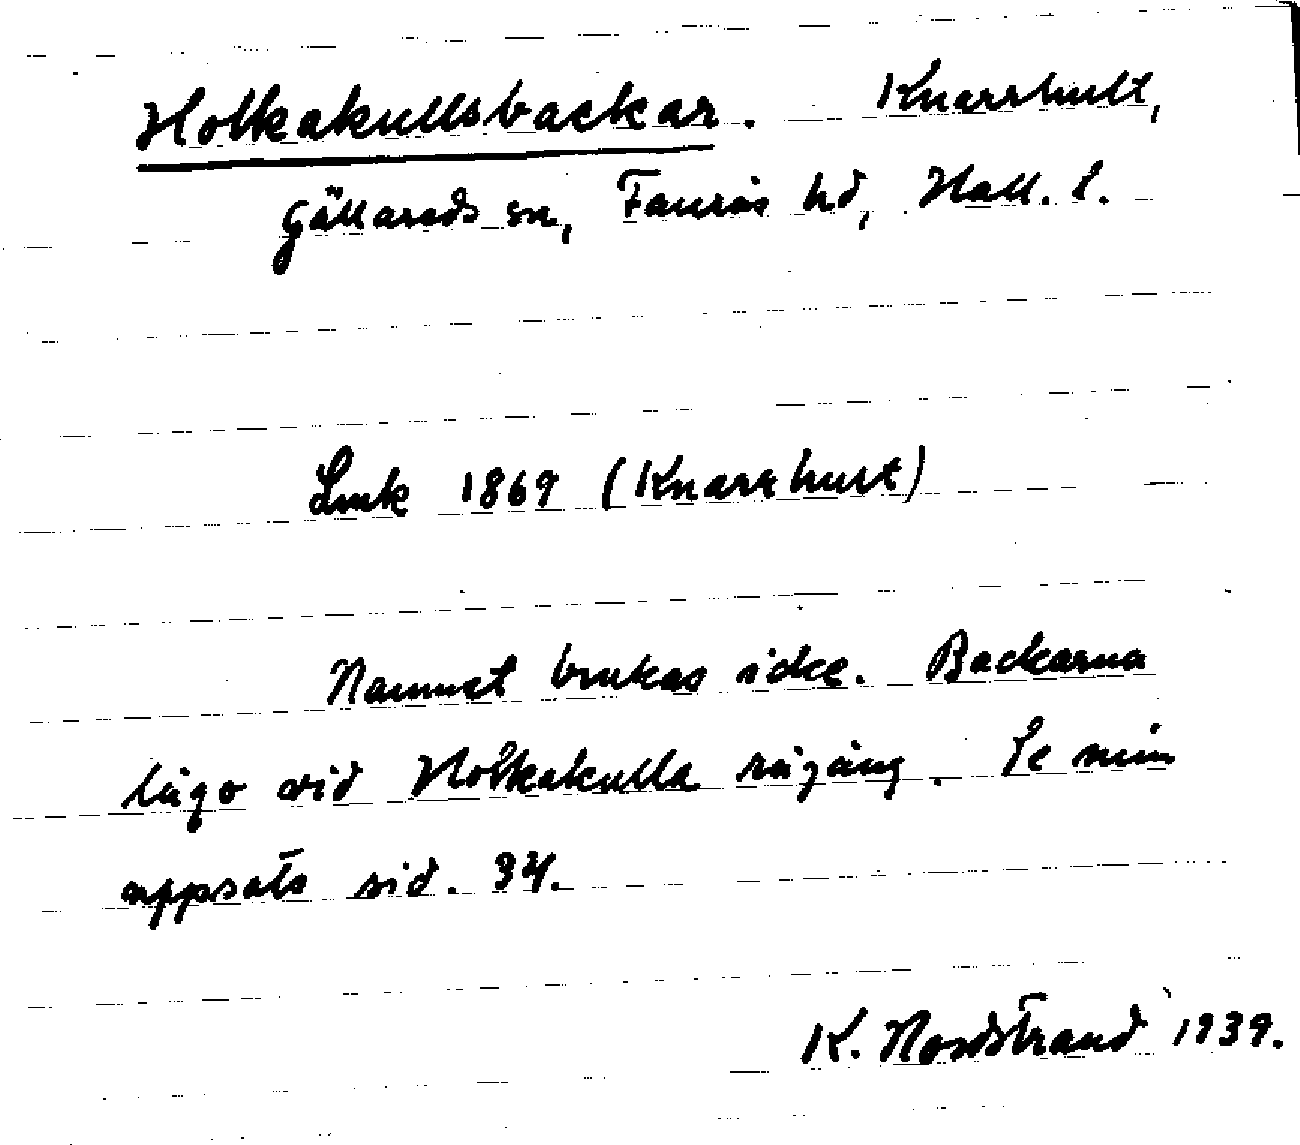 Holkakullsbackar. Knarrhult,
Gällareds sn, Faurås hd, Hall. l.
Lmk 1869 (Knarrhult)
Namnet brukas icke. Backarna
lågo vid Holkakulla rågång. Se min
uppsats sid. 34.
K. Nordstrand 1939.